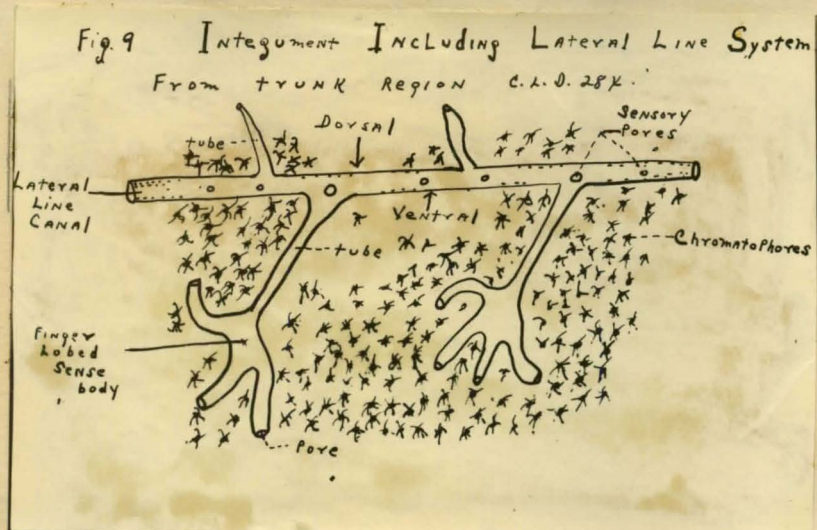 Fig. 9 Integument Including Lateral Line System
From trunk Region C.L.D. 28X.
Sensory
Pores
Dorsal
tube
Lateral
Line
Canal
Ventral
tube
Chromatophores
Finger
Lobed
Sense
body
Pore